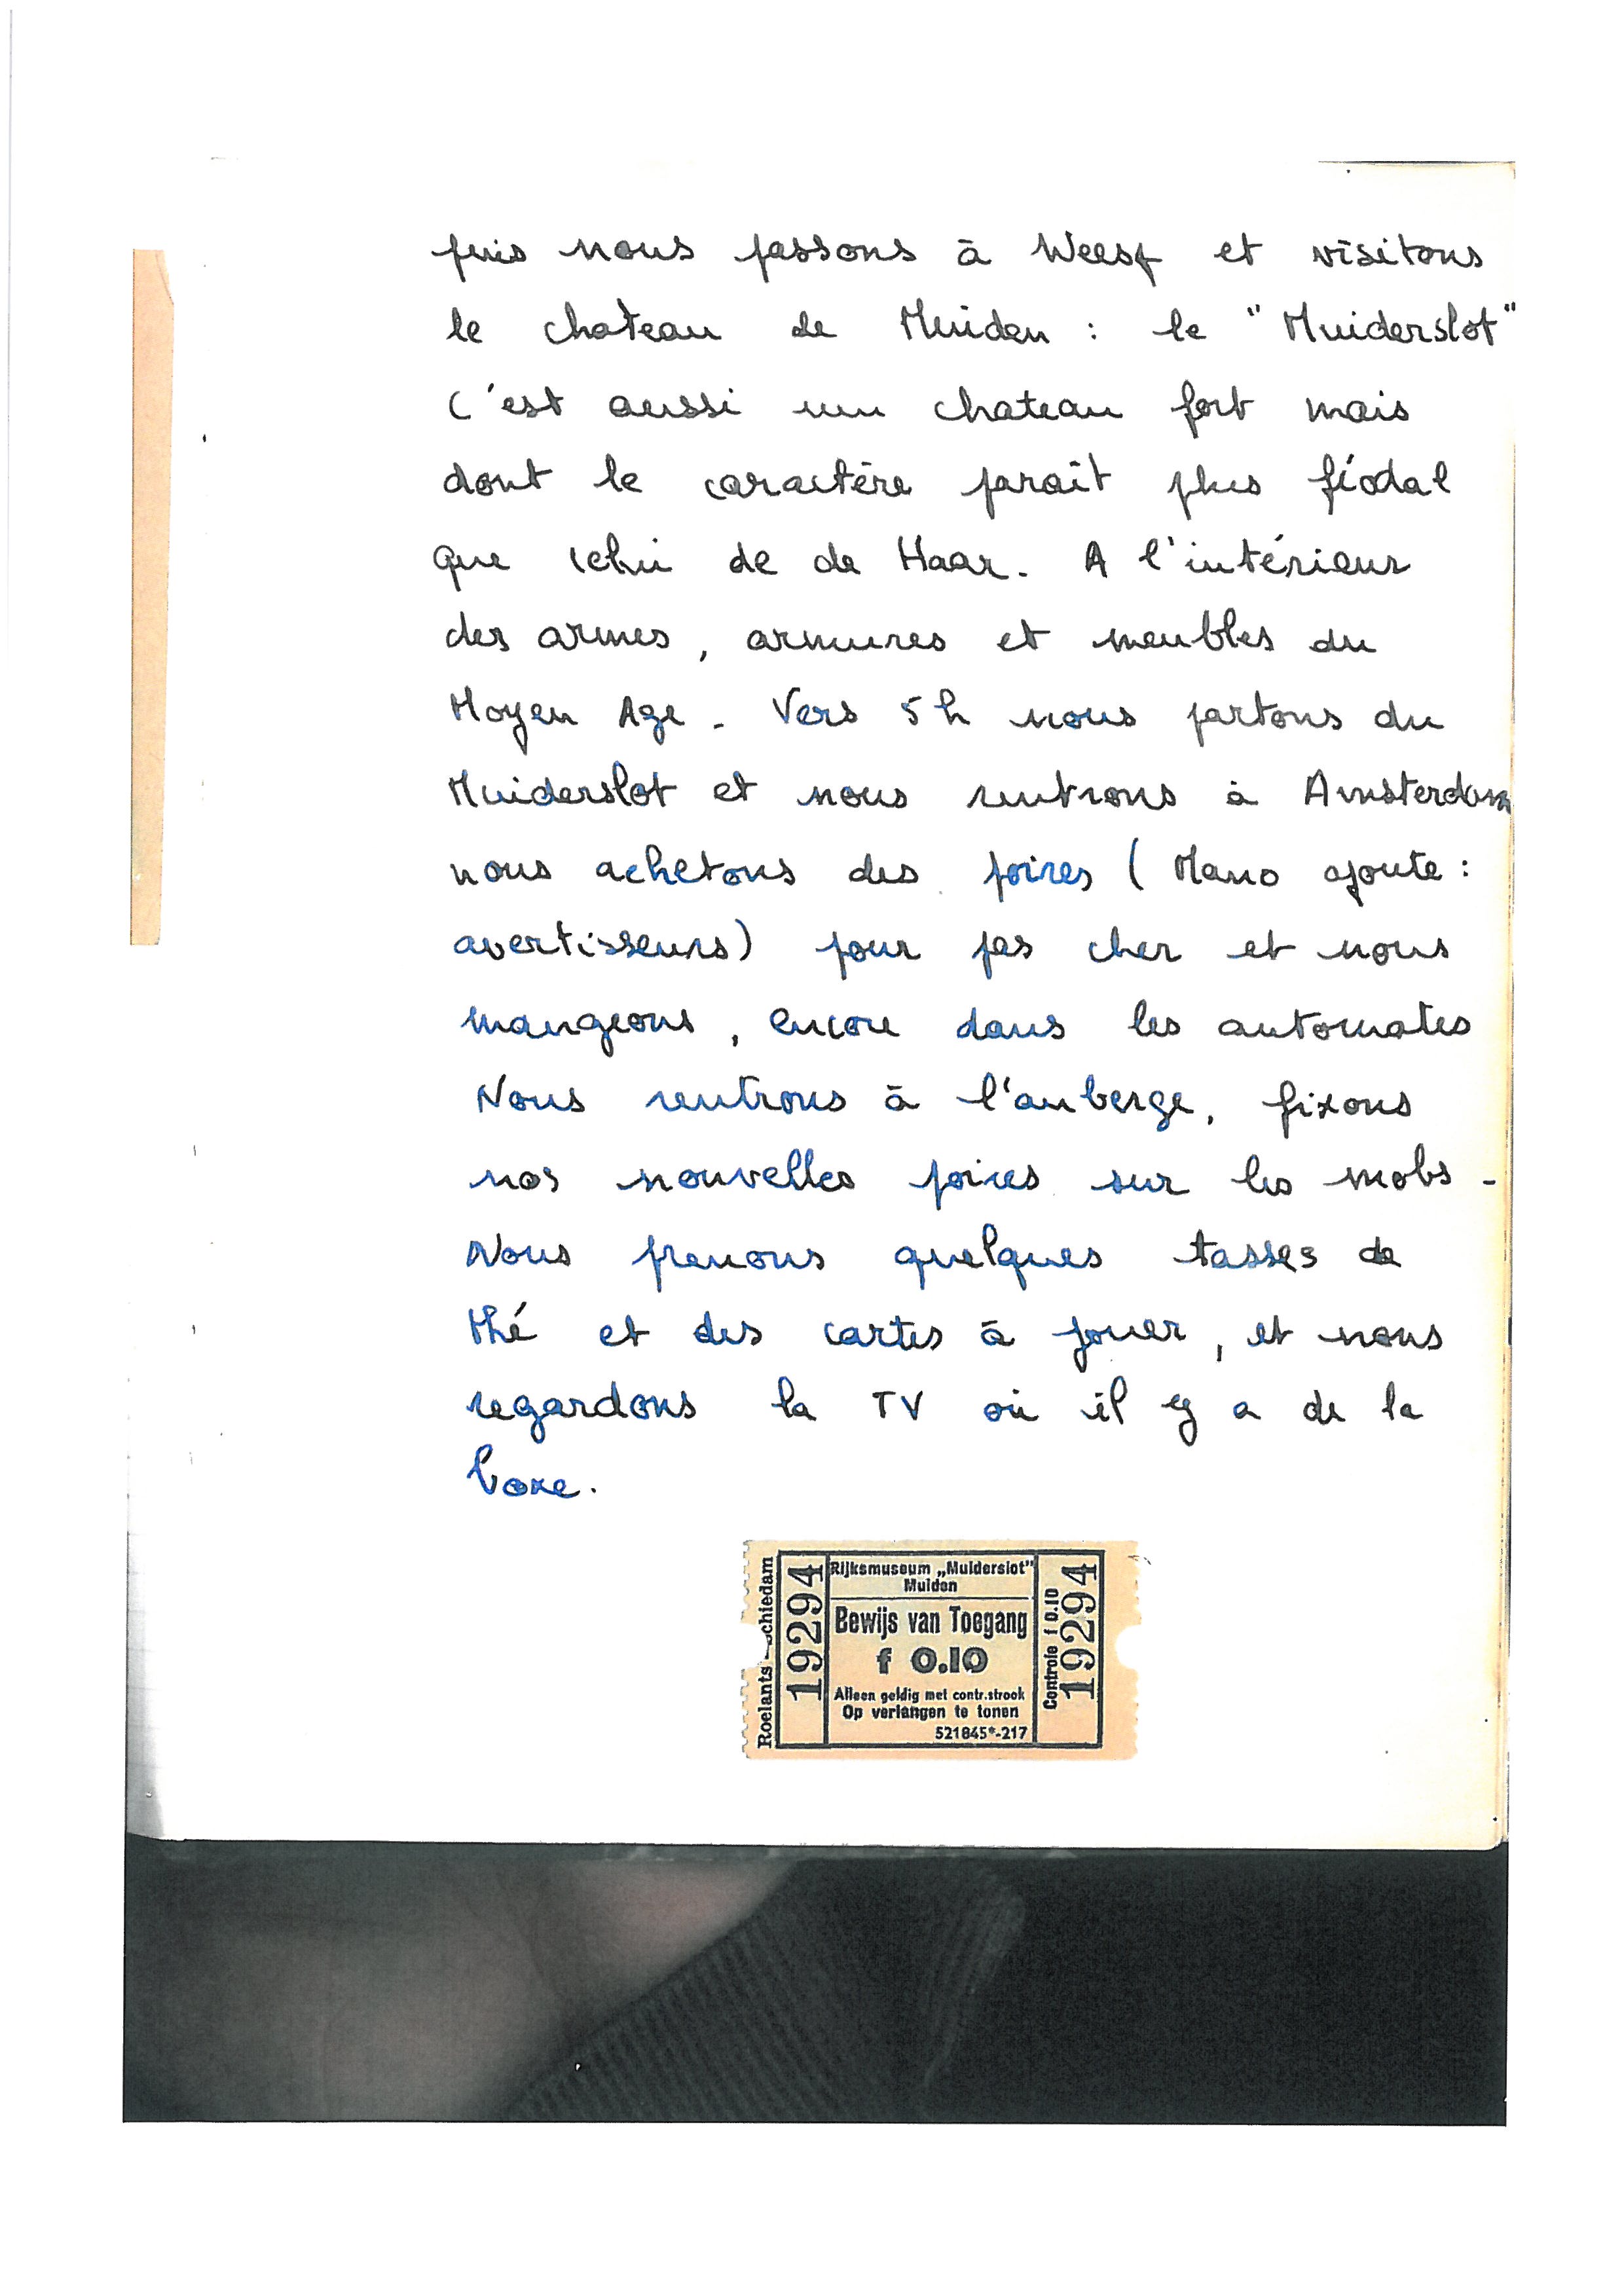 puis nous passons à Weesp et visitons
le chateau de Muiden : le "Muiderslot"
C'est aussi un chateau fort mais
dont le caractère parait plus féodal
que celui de de Haar. A l'intérieur
des armes, armures et meubles du
Moyen Age - Vers 5h nous partons du
Muiderslot et nous rentrons à Amsterdam
nous achetons des poires ( Mano ajoute :
avertisseurs) pour pas cher et nous
mangeons, encore dans les automates
Nous rentrons à l'auberge, fixons
nos nouvelles poires sur les mobs -
Nous prenons quelques tasses de
thé et des cartes à jouer, et nous
regardons la TV où il y a de la
boxe.
Roelants - Schiedam
19294
Rijksmuseum „Muiderslot"
Muiden
Bewijs van Toegang
f 0.10
Alleen geldig met contr.strook
Op verlangen te tonen
521845*-217
Controle f 0.10
19294